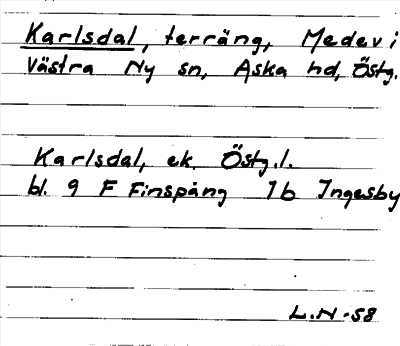 Karlsdal, terräng, Medevi
Västra Ny sn, Aska hd, Östg.
Karlsdal, ek. Östg.l.
bl. 9 F Finspång 1b Ingesby
L.N-58